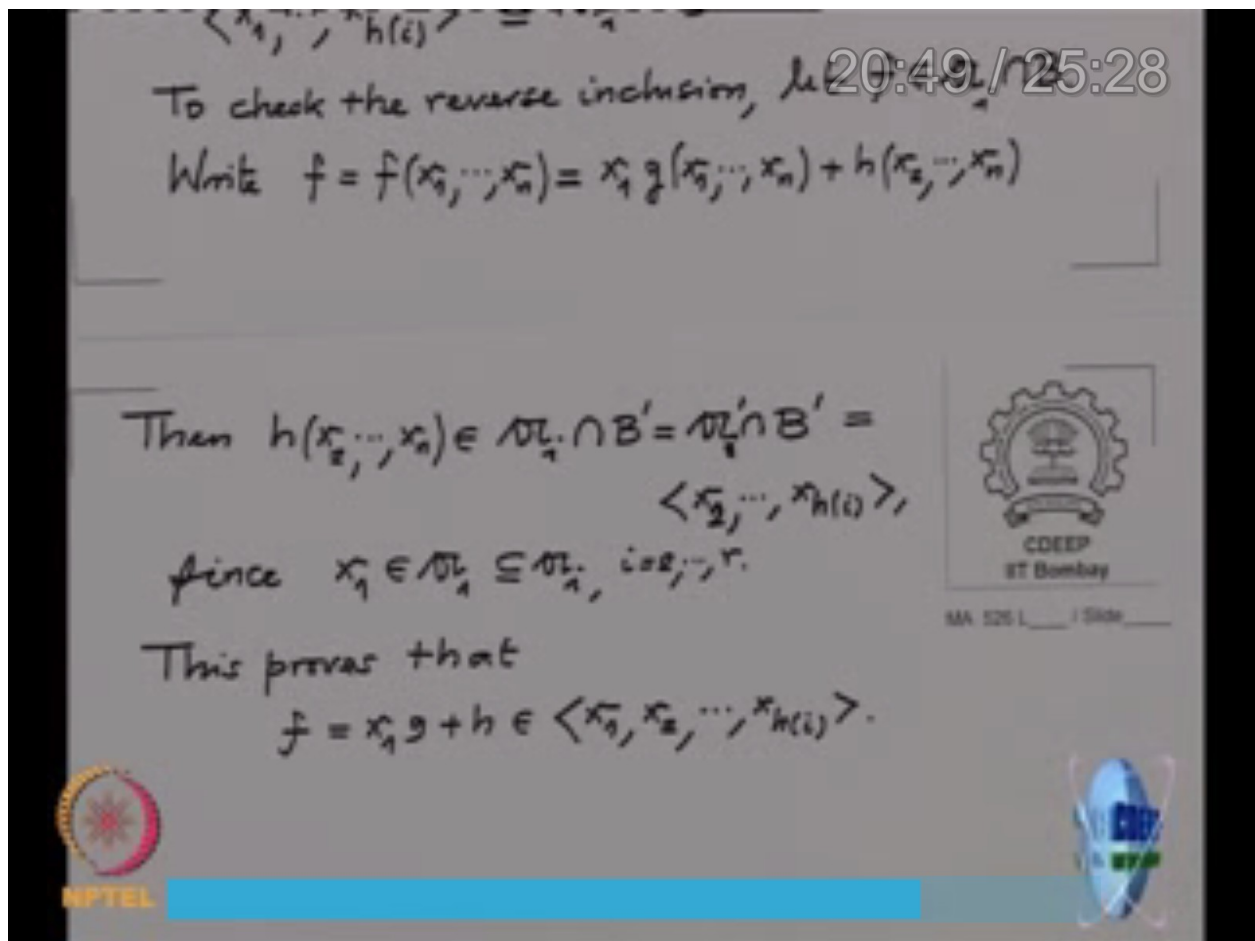 ⟨x₁, ⋯, x_{h(i)}⟩ ⊆
20:49 / 25:28
To check the reverse inclusion, let f ∈ 𝔄₁ ∩ B
Write f = f(x₁, ⋯, xₙ) = x₁ g(x₁, ⋯, xₙ) + h(x₂, ⋯, xₙ)
Then h(x₂, ⋯, xₙ) ∈ 𝔄ᵢ ∩ B' = 𝔄ᵢ' ∩ B' =
⟨x₂, ⋯, x_{h(i)}⟩,
since x₁ ∈ 𝔄₁ ⊆ 𝔄ᵢ, i=2, ⋯, r.
This proves that
f = x₁ g + h ∈ ⟨x₁, x₂, ⋯, x_{h(i)}⟩.
CDEEP
IIT Bombay
MA 526 L___ / Slide___
NPTEL
CDEEP